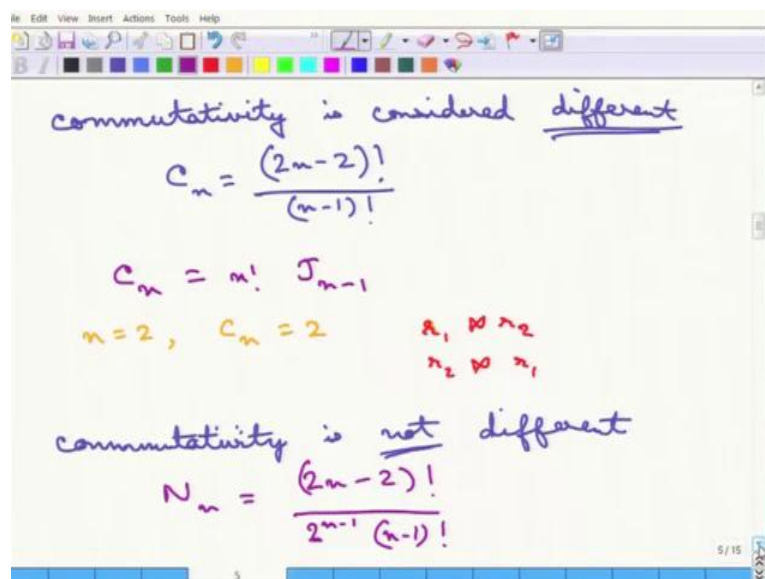 File Edit View Insert Actions Tools Help
commutativity is considered different
C_n = (2n-2)! / (n-1)!
C_n = n! J_{n-1}
n=2, C_n = 2 r_1 ⋈ r_2
r_2 ⋈ r_1
commutativity is not different
N_n = (2n-2)! / 2^{n-1} (n-1)!
5/15
5